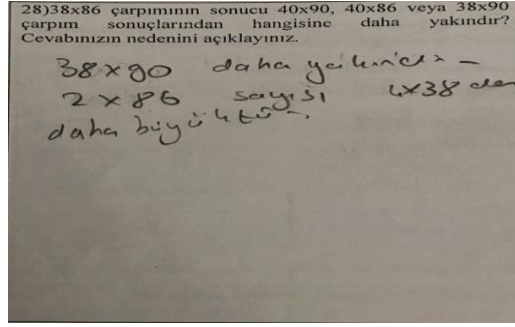 28)38x86 çarpımının sonucu 40x90, 40x86 veya 38x90
çarpım sonuçlarından hangisine daha yakındır?
Cevabınızın nedenini açıklayınız.
38x90 daha yakındır
2x86 sayısı 4x38 den
daha büyüktür.